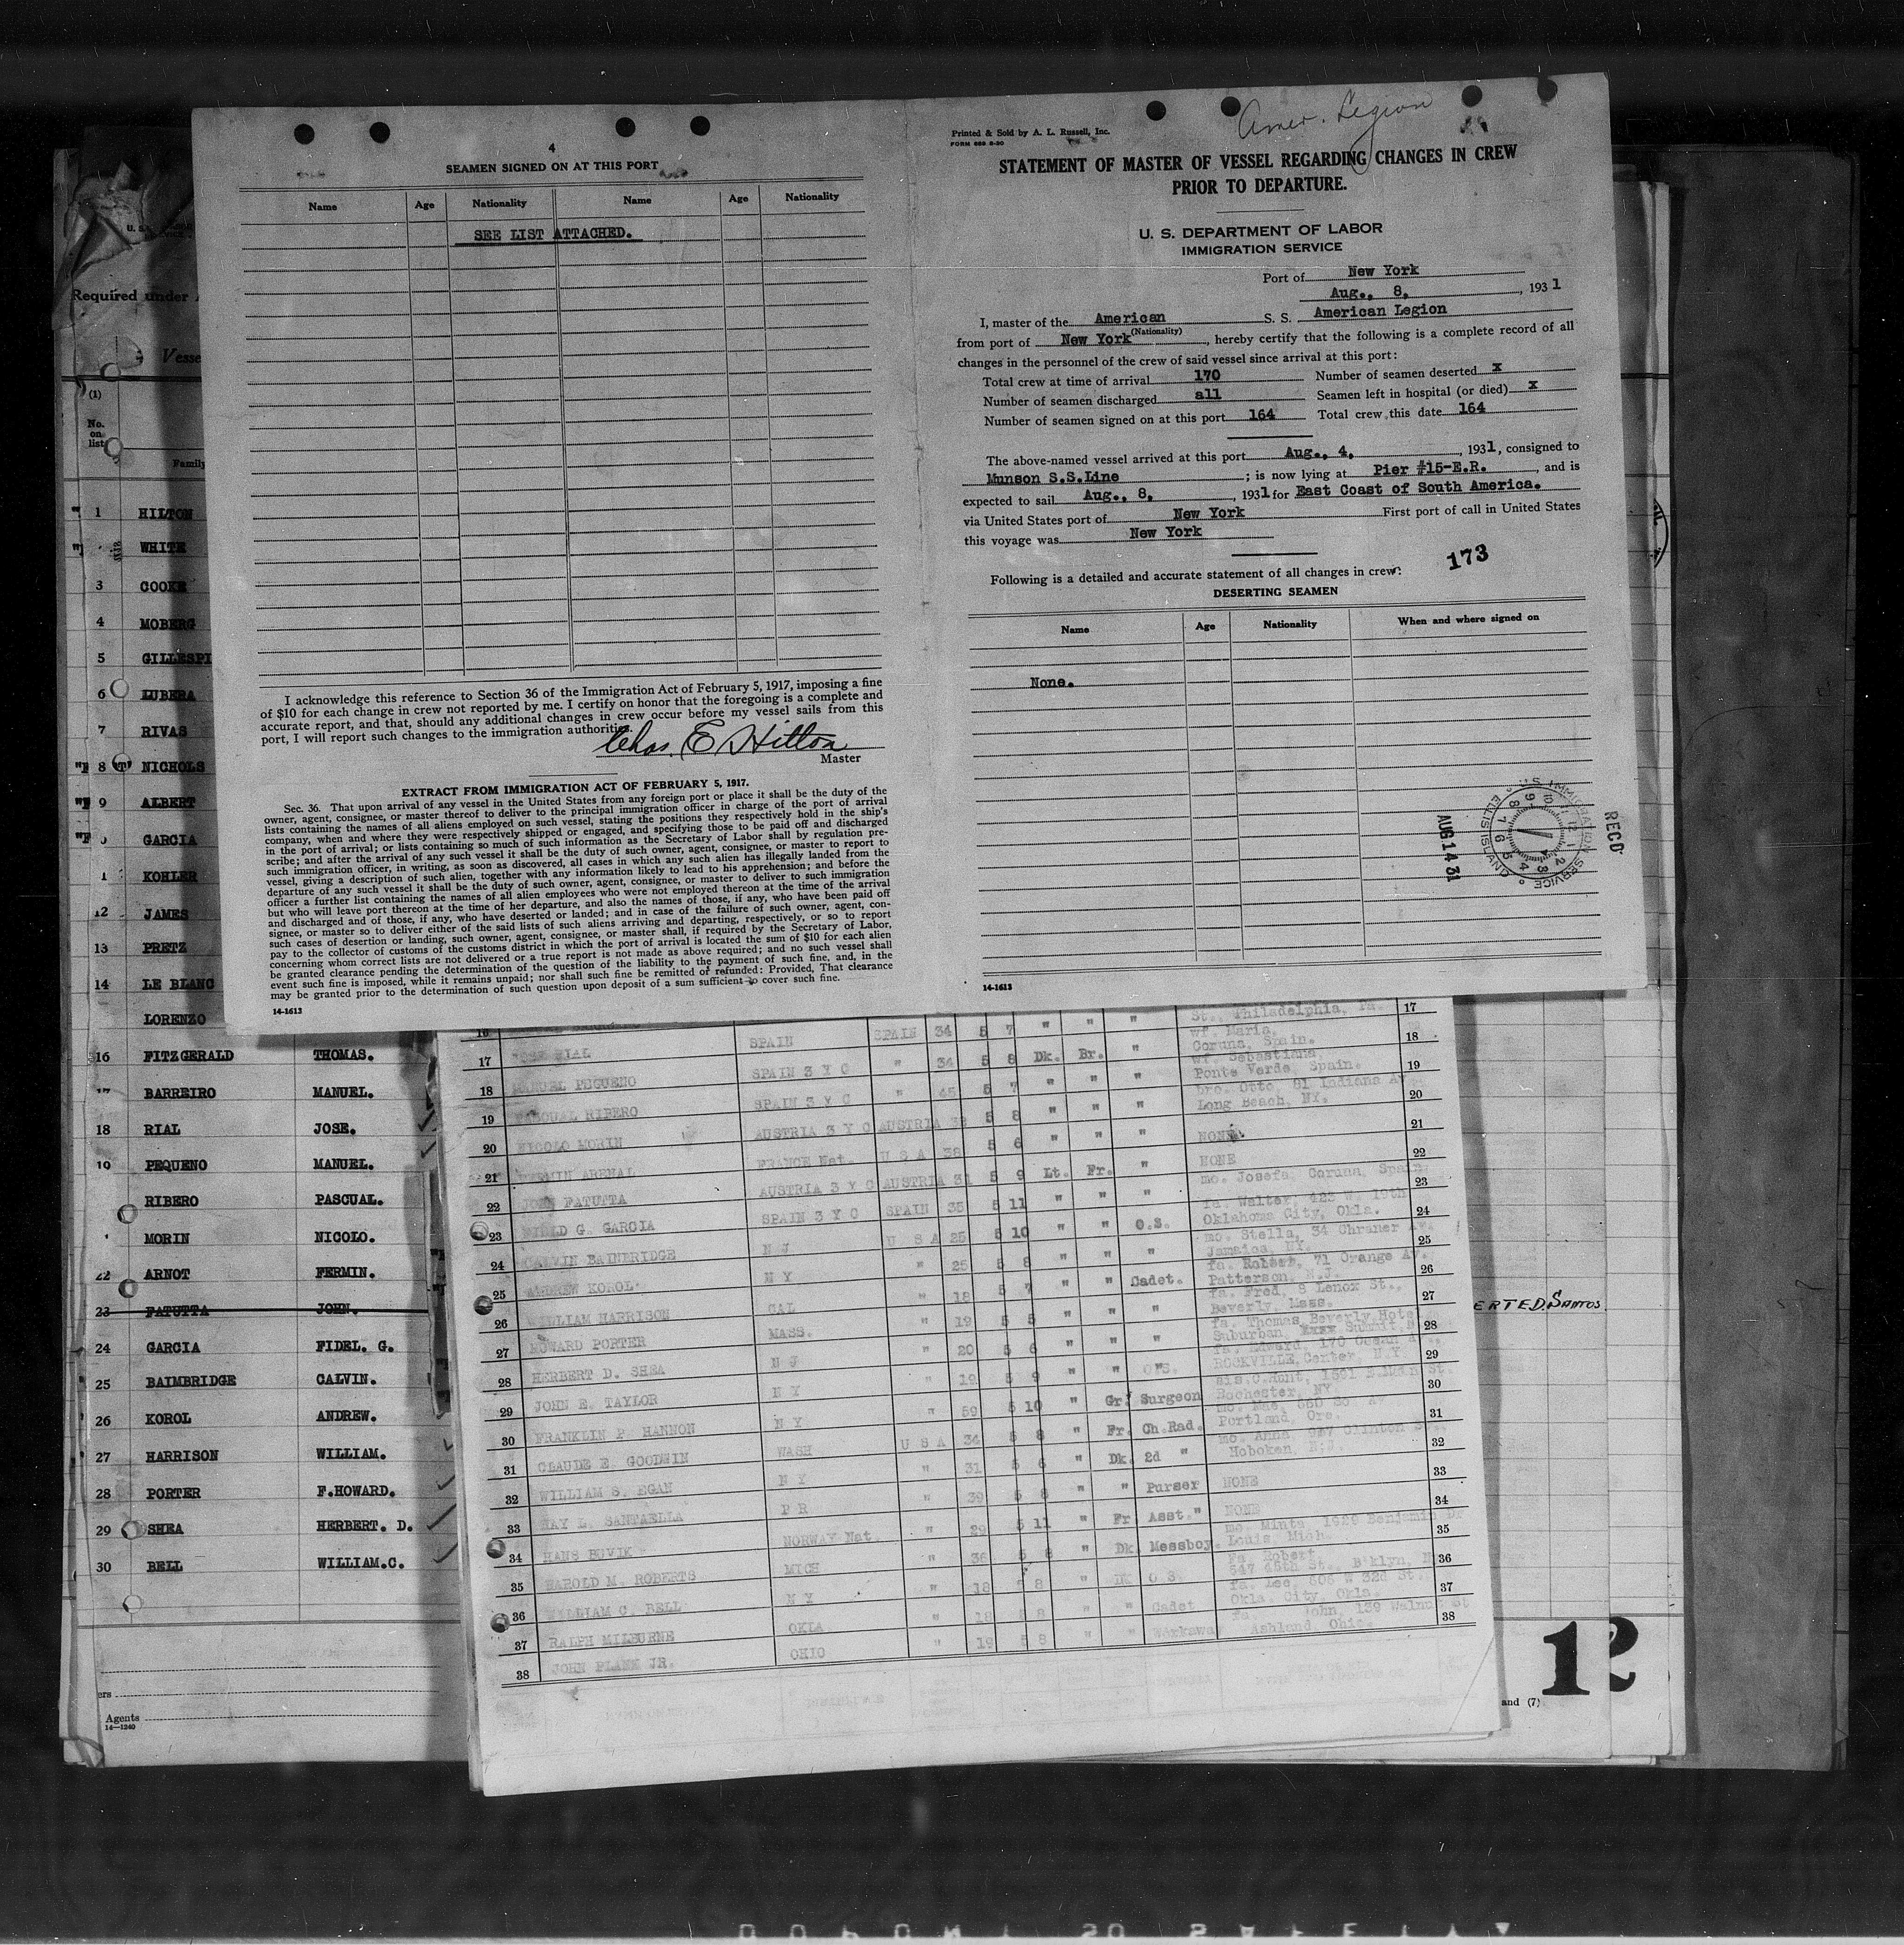 4
SEAMEN SIGNED ON AT THIS PORT
Name Age Nationality Name Age Nationality
SEE LIST ATTACHED.
I acknowledge this reference to Section 36 of the Immigration Act of February 5, 1917, imposing a fine
of $10 for each change in crew not reported by me. I certify on honor that the foregoing is a complete and
accurate report, and that, should any additional changes in crew occur before my vessel sails from this
port, I will report such changes to the immigration authorities
Chas. E Hilton
Master
EXTRACT FROM IMMIGRATION ACT OF FEBRUARY 5, 1917.
Sec. 36. That upon arrival of any vessel in the United States from any foreign port or place it shall be the duty of the
owner, agent, consignee, or master thereof to deliver to the principal immigration officer in charge of the port of arrival
lists containing the names of all aliens employed on such vessel, stating the positions they respectively hold in the ship's
company, when and where they were respectively shipped or engaged, and specifying those to be paid off and discharged
in the port of arrival; or lists containing so much of such information as the Secretary of Labor shall by regulation pre-
scribe; and after the arrival of any such vessel it shall be the duty of such owner, agent, consignee, or master to report to
such immigration officer, in writing, as soon as discovered, all cases in which any such alien has illegally landed from the
vessel, giving a description of such alien, together with any information likely to lead to his apprehension; and before the
departure of any such vessel it shall be the duty of such owner, agent, consignee, or master to deliver to such immigration
officer a further list containing the names of all alien employees who were not employed thereon at the time of the arrival
but who will leave port thereon at the time of her departure, and also the names of those, if any, who have been paid off
and discharged and of those, if any, who have deserted or landed; and in case of the failure of such owner, agent, con-
signee, or master so to deliver either of the said lists of such aliens arriving and departing, respectively, or so to report
such cases of desertion or landing, such owner, agent, consignee, or master shall, if required by the Secretary of Labor,
pay to the collector of customs of the customs district in which the port of arrival is located the sum of $10 for each alien
concerning whom correct lists are not delivered or a true report is not made as above required; and no such vessel shall
be granted clearance pending the determination of the question of the liability to the payment of such fine, and, in the
event such fine is imposed, while it remains unpaid; nor shall such fine be remitted or refunded: Provided, That clearance
may be granted prior to the determination of such question upon deposit of a sum sufficient to cover such fine.
14-1613
Amer. Legion
Printed & Sold by A. L. Russell, Inc.
FORM 689 8-30
STATEMENT OF MASTER OF VESSEL REGARDING CHANGES IN CREW
PRIOR TO DEPARTURE.
U. S. DEPARTMENT OF LABOR
IMMIGRATION SERVICE
Port of New York
Aug., 8, , 1931
I, master of the American S. S. American Legion
(Nationality)
from port of New York , hereby certify that the following is a complete record of all
changes in the personnel of the crew of said vessel since arrival at this port:
Total crew at time of arrival 170 Number of seamen deserted x
Number of seamen discharged all Seamen left in hospital (or died) x
Number of seamen signed on at this port 164 Total crew this date 164
The above-named vessel arrived at this port Aug., 4, , 1931, consigned to
Munson S.S.Line ; is now lying at Pier #15-E.R. , and is
expected to sail Aug., 8, , 1931 for East Coast of South America.
via United States port of New York First port of call in United States
this voyage was New York
173
Following is a detailed and accurate statement of all changes in crew:
DESERTING SEAMEN
Name Age Nationality When and where signed on
None.
REC'D
U.S. IMMIGRATION SERVICE ELLIS ISLAND
AUG 14 31
14-1613
Required under
Vesse
(1)
No.
on
list
Family
1 HILTON
WHITE
3 COOKE
4 MOBERG
5 GILLESPI
6 LUBERA
7 RIVAS
8 NICHOLS
9 ALBERT
GARCIA
KOHLER
12 JAMES
13 PRETZ
14 LE BLANC
LORENZO
16 FITZGERALD THOMAS.
17 BARREIRO MANUEL.
18 RIAL JOSE.
19 PEQUENO MANUEL.
RIBERO PASCUAL.
MORIN NICOLO.
22 ARNOT FERMIN.
23 FATUTTA JOHN.
24 GARCIA FIDEL. G.
25 BAIMBRIDGE CALVIN.
26 KOROL ANDREW.
27 HARRISON WILLIAM.
28 PORTER F.HOWARD.
29 SHEA HERBERT. D.
30 BELL WILLIAM.C.
ers
Agents
14—1240
St., Philadelphia, 17
16 SPAIN SPAIN 34 5 7 " " " wf. Maria, Coruna, Spain. 18
17 SPAIN 3 Y C " 34 5 8 Dk. Br. " wf. Sebastiana Ponte Verde, Spain. 19
18 MANUEL PEGUENO SPAIN 3 Y C " 45 5 7 " " " bro. Otto, 91 Indiana Av. Long Beach, NY. 20
19 RIBERO AUSTRIA 3 Y C AUSTRIA 5 8 " " " 21
20 NICOLO MORIN FRANCE Nat. U S A 38 5 6 " " " NONE 22
21 ARENAL AUSTRIA 3 Y C AUSTRIA 31 5 9 Lt. Fr. " NONE
22 JOHN FATUTTA SPAIN 3 Y C SPAIN 35 5 11 " " " mo. Josefa, Coruna, Spain 23
23 G. GARCIA N J U S A 25 5 10 " " O.S. fa. Walter, 423 W. 19th Oklahoma City, Okla. 24
24 CALVIN BAINBRIDGE N Y " 25 5 8 " " " mo. Stella, 34 Jamaica, NY. 25
25 ANDREW KOROL CAL " 18 5 7 " " Cadet. fa. Robert, 71 Orange Av. Patterson, N.J. 26
26 WILLIAM HARRISON MASS. " 19 5 5 " " " fa. Fred, 8 Lenox St., Beverly, Mass. 27
27 HOWARD PORTER N J " 20 5 6 " " " fa. Thomas Beverly Hotel Suburban, Summit, 28
28 HERBERT D. SHEA N Y " 19 5 9 " " O.S. fa. Edward, 170 Ocean ROCKVILLE Center, N.Y. 29
29 JOHN E. TAYLOR N Y " 59 5 10 " Gr. Surgeon Rochester, NY. 30
30 FRANKLIN P. HANNON WASH U S A 34 5 8 " Fr. Ch.Rad. Portland, Ore. 31
31 CLAUDE E. GOODWIN N Y " 31 5 6 " Dk. 2d " mo. Anna, 927 Clinton Hoboken, N.J. 32
32 WILLIAM S. EGAN P R " 39 5 8 " " Purser NONE 33
33 RAY L. SANTAELLA NORWAY Nat. " 29 5 11 " Fr Asst." NONE 34
34 HANS MICH " 36 5 8 " Dk Messboy. 35
35 HAROLD M. ROBERTS N Y " 18 8 " Dk O S. fa. Robert 547 45th St., B'klyn, 36
36 WILLIAM C. BELL OKLA " 18 5 8 " " Cadet fa. Lee, 606 W 32d St. Okla. City, Okla. 37
37 RALPH MILBURNE OHIO " 19 5 8 " " Workaway fa. John, 139 Walnut St Ashland, Ohio. 38
38 JOHN PLANK JR.
ERTED. SANTOS
12
and (7)